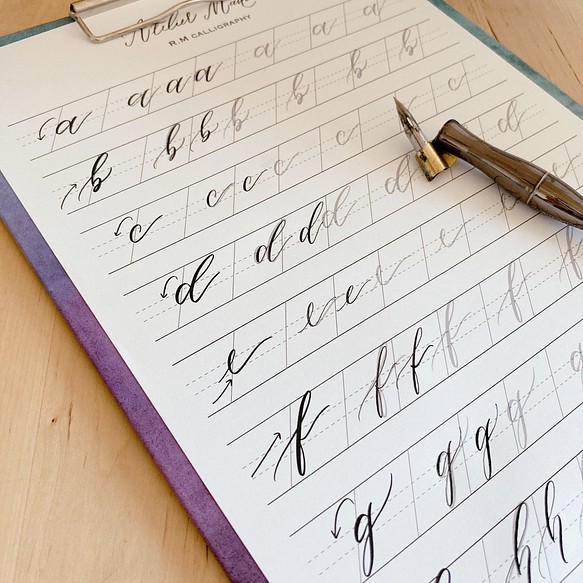 Atelier
R.M CALLIGRAPHY
a a a a a a a
b b b b b b b
c c c c c c
d d d d d d
e e e e e e
f f f f f f
g g g g g
h h